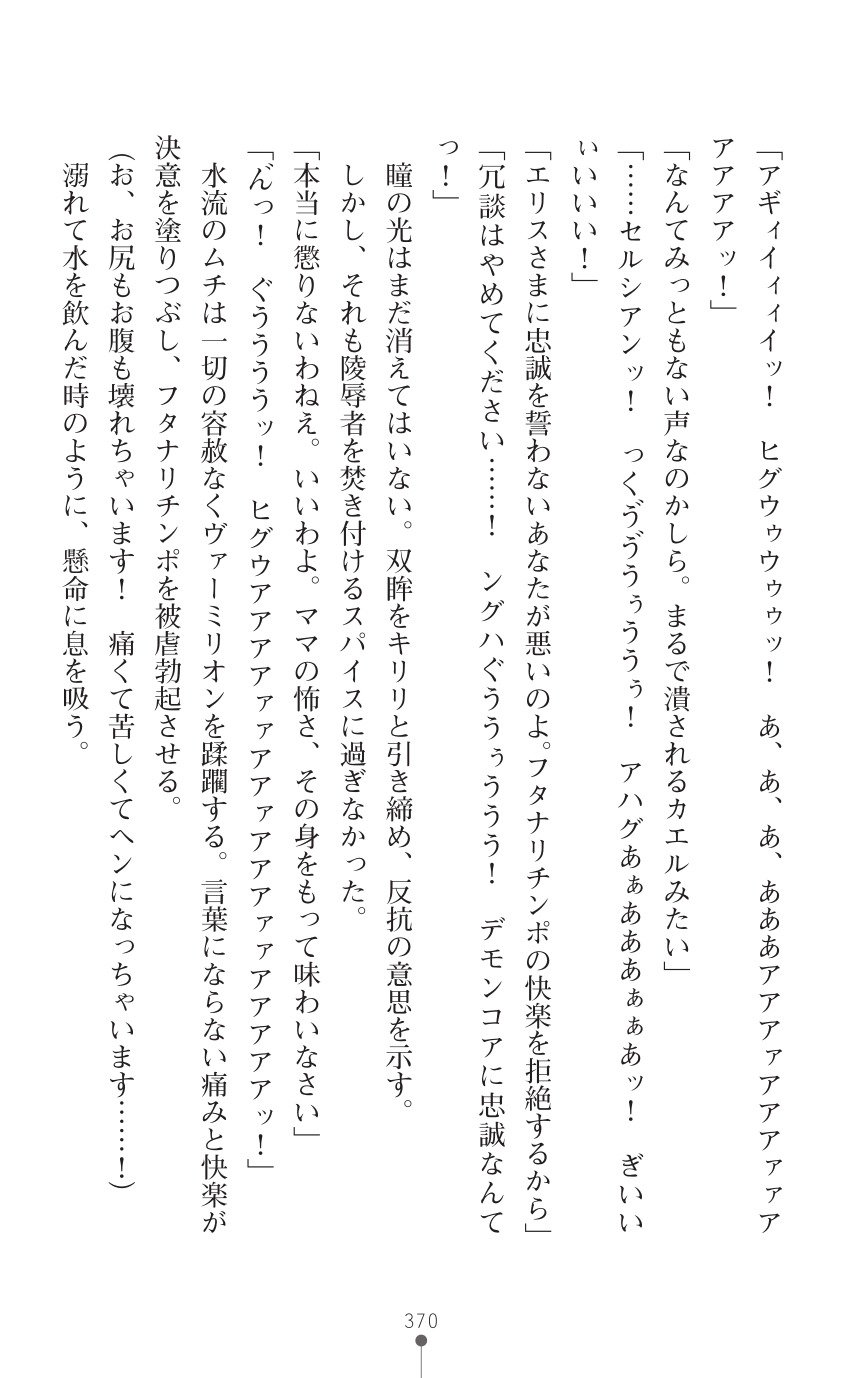 「アギィイィィイッ！　ヒグウゥウゥゥッ！　あ、あ、あ、あああアアアァアアアアァァア
アアアアッ！」
「なんてみっともない声なのかしら。まるで潰されるカエルみたい」
「……セルシアンッ！　っくゔゔうぅううぅ！　アハグあぁあああぁぁあッ！　ぎいい
ぃいいい！」
「エリスさまに忠誠を誓わないあなたが悪いのよ。フタナリチンポの快楽を拒絶するから」
「冗談はやめてください……！　ングハぐううぅううう！　デモンコアに忠誠なんて
っ！」
　瞳の光はまだ消えてはいない。双眸をキリリと引き締め、反抗の意思を示す。
　しかし、それも陵辱者を焚き付けるスパイスに過ぎなかった。
「本当に懲りないわねえ。いいわよ。ママの怖さ、その身をもって味わいなさい」
「ん゛っ！　ぐううううッ！　ヒグウアアアアァァアアァアアアアァァアアアアアッ！」
　水流のムチは一切の容赦なくヴァーミリオンを蹂躙する。言葉にならない痛みと快楽が
決意を塗りつぶし、フタナリチンポを被虐勃起させる。
（お、お尻もお腹も壊れちゃいます！　痛くて苦しくてヘンになっちゃいます……！）
　溺れて水を飲んだ時のように、懸命に息を吸う。
370